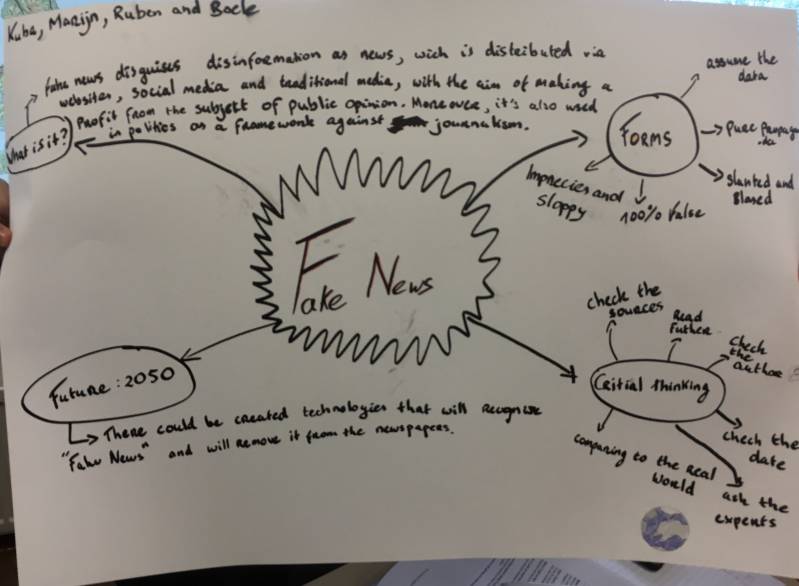 Kuba, Marijn, Ruben and Boele
fake news disguises disinformation as news, wich is distributed via
websites, social media and traditional media, with the aim of making a
profit from the subject of public opinion. Moreover, it's also used
in politics as a framework against journalism.
What is it?
FORMS
assume the
data
Pure propagan
da
Slanted and
Biased
100% Valse
Imprecies and
Sloppy
Fake News
Future: 2050
There could be created technologies that will recognise
"Fake News" and will remove it from the newspapers.
Critial thinking
check the
sources
Read
Futher
check
the
author
check the
date
ask the
experts
comparing to the real
World